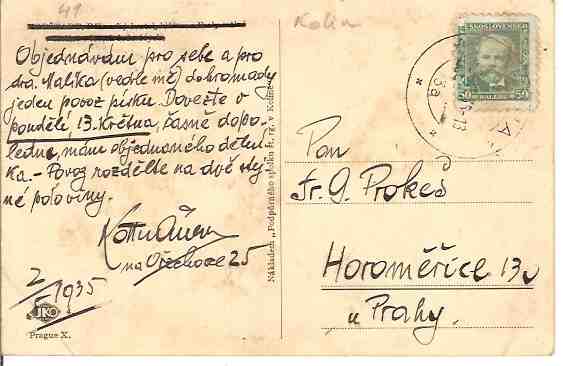 41
Kolín
Objednávám pro sebe a pro
dra. Malíka (vedle mě) dohromady
jeden povoz písku. Dovezte v
pondělí, 13. května, časně dopo-
ledne, mám objednaného dělní-
ka. - Povoz rozdělte na dvě stej-
né poloviny.
na Ořechovce 25
2/ 1935
JKO
Prague X.
Nákladem „Podpůrného spolku st. rg. v Kolíně"
ČESKOSLOVENSKO
50 HALÉŘŮ 50
Pan
Fr. G. Prokeš
Horoměřice 13
u Prahy.